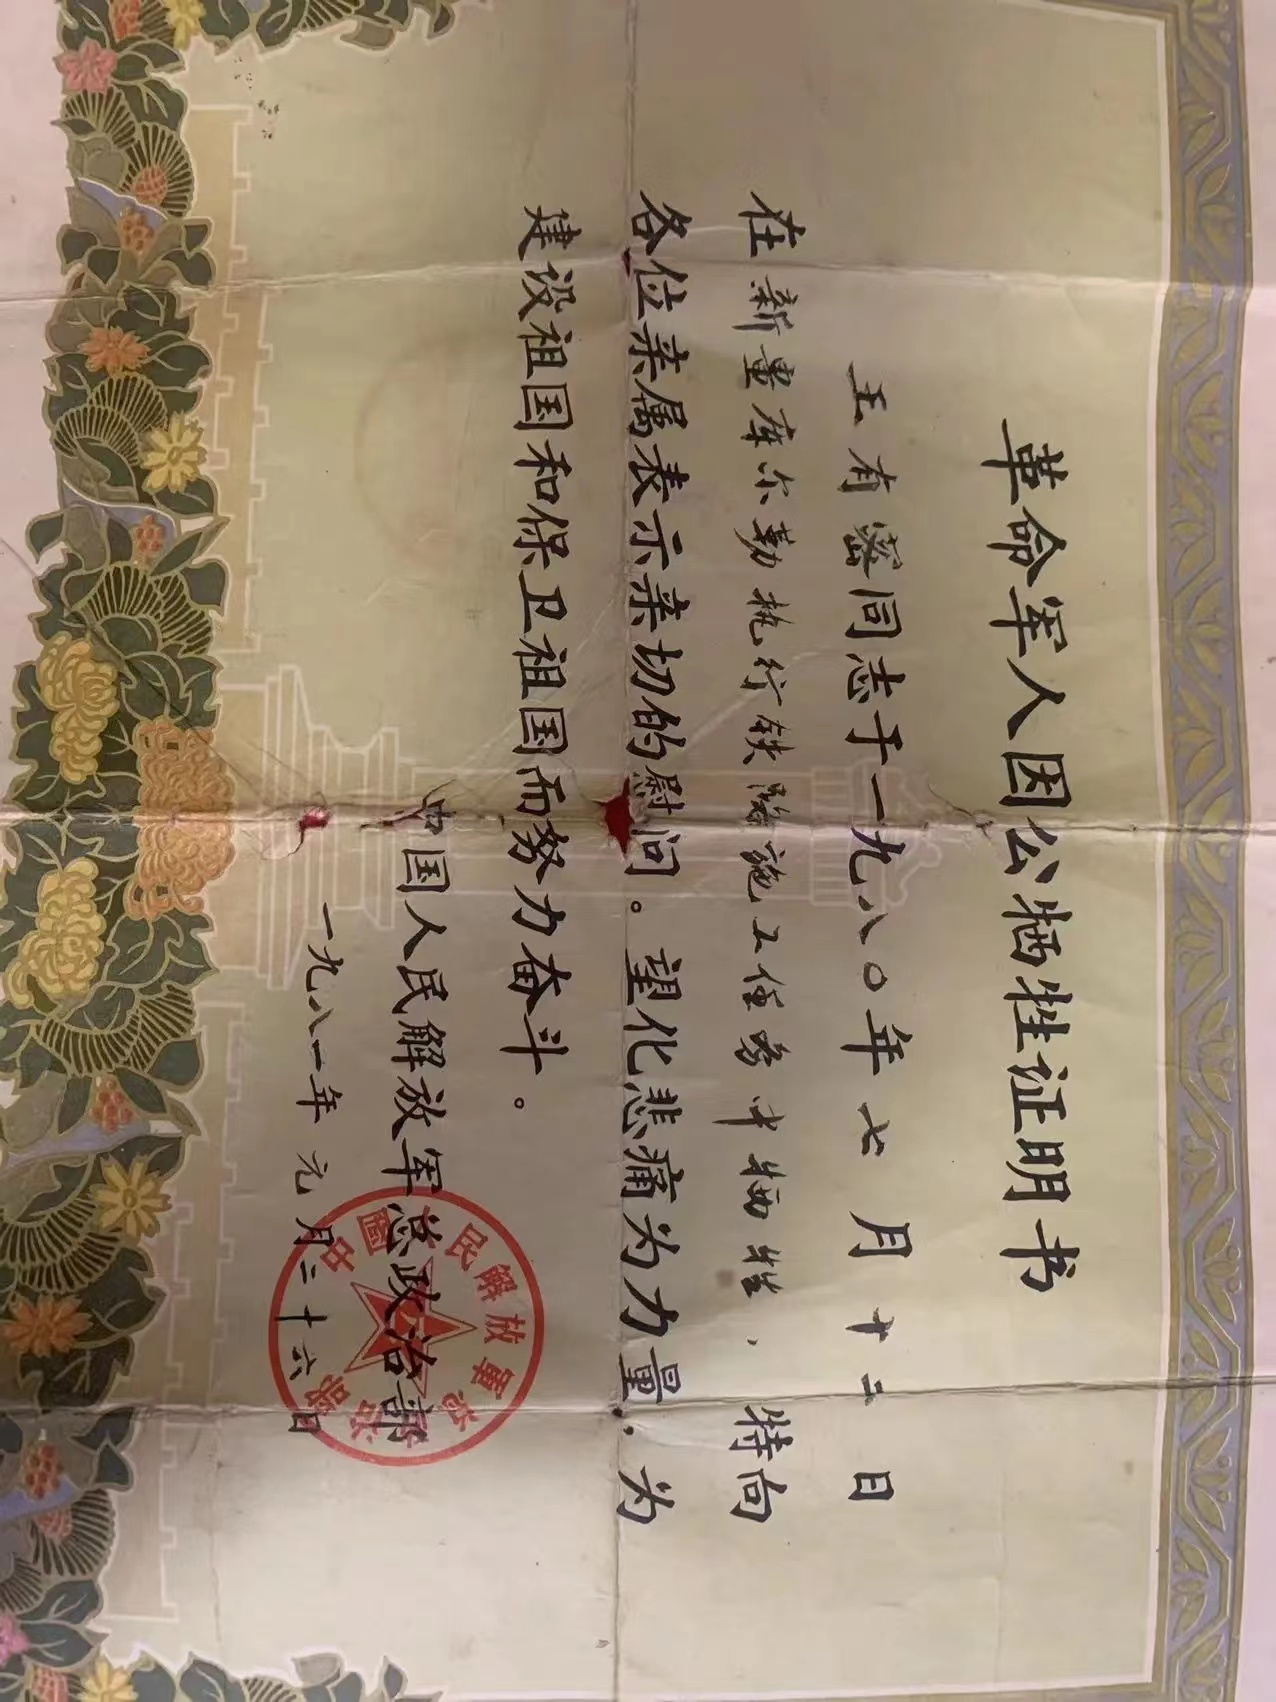 革命军人因公牺牲证明书
王有密同志于一九八〇年七月十二日
在新畺库尔勒执行铁路施工任务中牺牲，特向
各位亲属表示亲切的慰问。望化悲痛为力量，为
建设祖国和保卫祖国而努力奋斗。
中国人民解放军总政治部
一九八一年元月二十六日
中國人民解放軍总政治部